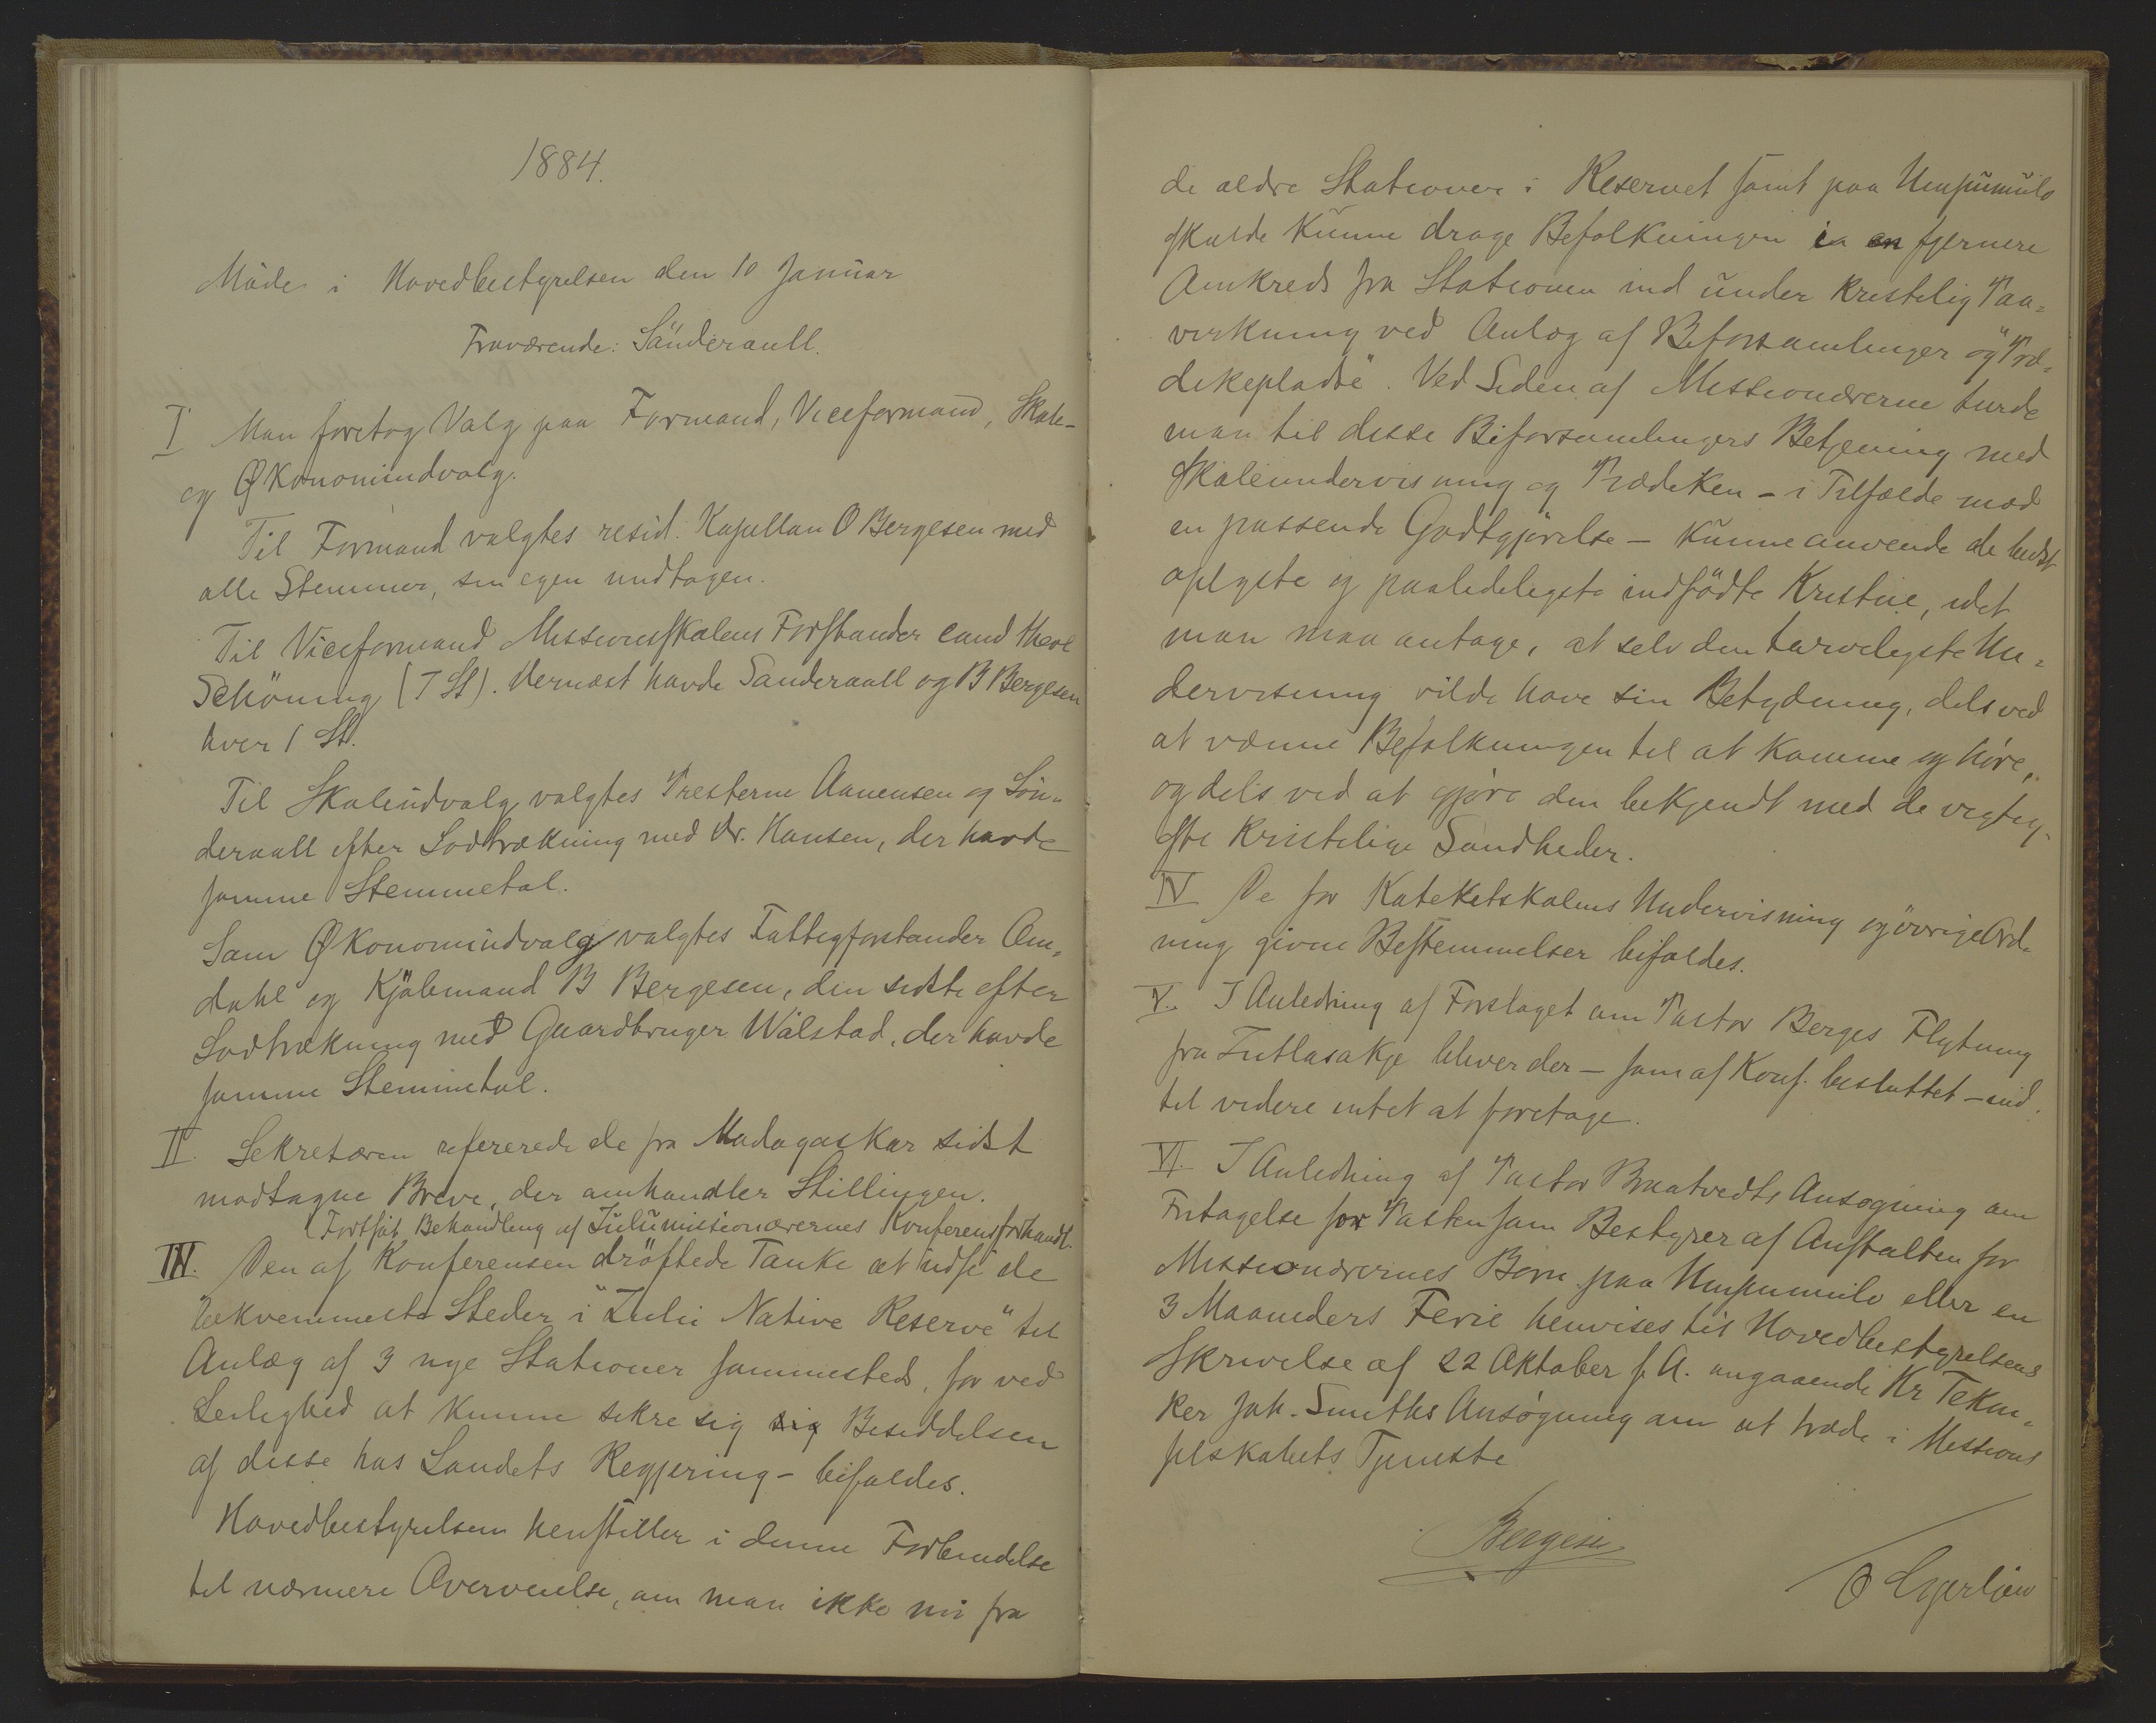 1884.
Möde i Hovedbestyrelsen den 10 Januar
Fraværende: Sönderaall.
I Man foretog Valg paa Formand, Viceformand, Skole-
og Økonomiudvalg.
Til Formand valgtes resid. Kapellan O Bergesen med
alle Stemmer, sin egen undtagen.
Til Viceformand Missionsskolens Forstander cand theol
Schöning (7 St). Dernæst havde Sønderaall og B Bergesen
hver 1 St.
Til Skoleudvalg valgtes Presterne Aanensen og Sön-
deraall efter Lodtrækning med Dr. Hansen, der havde
samme Stemmetal.
Som Økonomiudvalg valgtes Fattigforstander Om-
dahl og Kjøbmand B Bergesen, den sidste efter
Lodtrækning med Gaardbruger Wålstad, der havde
samme Stemmetal.
II. Sekretæren refererede de fra Madagaskar sidst
modtagne Breve, der omhandler Stillingen.
(Fortsat Behandling af Zulumissionærernes Konferensforhandl.
III. Den af Konferensen dröftede Tanke at udse de
bekvemmeste Steder i "Zulu Native Reserve" til
Anlæg af 3 nye Stationer sammesteds, for ved
Leilighed at kunne sikre sig sig Besiddelsen
af disse hos Landets Regjering - bifaldes.
Hovedbestyrelsen henstiller i denne Forbindelse
til nærmere Overveielse, om man ikke nu fra
de ældre Stationer i Reservet samt paa Umpumulo
skulde kunne drage Befolkningen i en fjernere
Omkreds fra Stationen ind under kristelig Paa-
virkning ved Anlæg af Biforsamlinger og "Præ-
dikepladse". Ved Siden af Missionærerne turde
man til disse Biforsamlingers Betjening med
Skoleundervisning og Prædiken - i Tilfælde mod
en passende Godtgjörelse - kunne anvende de bedst
oplyste og paalideligste indfödte Kristne, idet
man maa antage, at selv den tarveligste Un-
dervisning vilde have sin Betydning, dels ved
at vænne Befolkningen til at komme og höre,
og dels ved at gjöre den bekjendt med de vigtig-
ste kristelige Sandheder.
IV De for Kateketskolens Undervisning og övrige Ord-
ning givne Bestemmelser bifaldes.
V. I Anledning af Forslaget om Pastor Berges Flytning
fra Entlasakje bliver der - som af Konf. besluttet - ind-
til videre intet at foretage.
VI. I Anledning af Pastor Braatvedts Ansögning om
Fritagelse for Posten som Bestyrer af Anstalten for
Missionærernes Börn paa Umpumulo eller en
3 Maaneders Ferie henvises til Hovedbestyrelsens
Skrivelse af 22 Oktober f. A. angaaende Hr Tekni-
ker Joh. Smiths Ansögning om at træde i Missions
selskabets Tjeneste
Bergesen
O Gjerløw